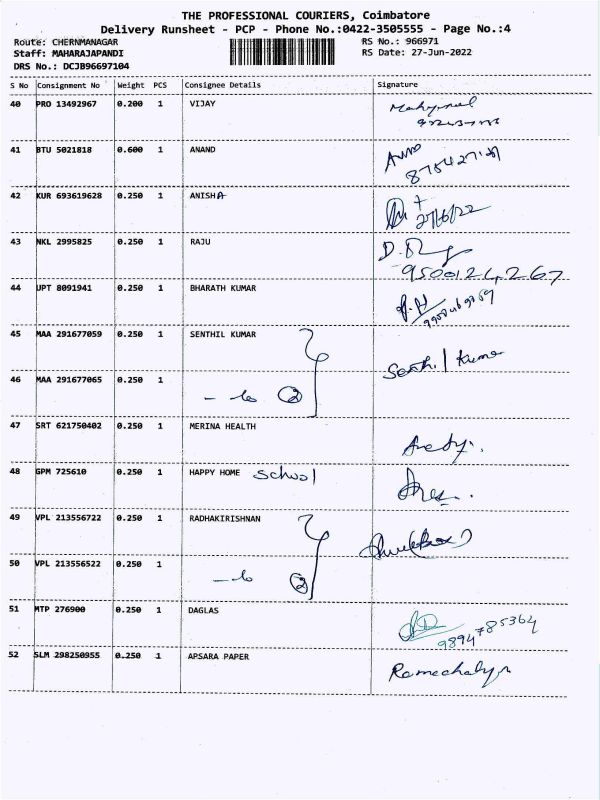 THE PROFESSIONAL COURIERS, Coimbatore
Delivery Runsheet - PCP - Phone No.:0422-3505555 - Page No.:4
Route: CHERNMANAGAR
RS No.: 966971
Staff: MAHARAJAPANDI
RS Date: 27-Jun-2022
DRS No.: DCJB96697104
S No Consignment No Weight PCS Consignee Details Signature
40 PRO 13492967 0.200 1 VIJAY
41 BTU 5021818 0.600 1 ANAND
42 KUR 693619628 0.250 1 ANISHA
27/6/22
43 NKL 2995825 0.250 1 RAJU
9500124267
44 UPT 8091941 0.250 1 BHARATH KUMAR
45 MAA 291677059 0.250 1 SENTHIL KUMAR
Senthil Kumar
46 MAA 291677065 0.250 1
2
47 SRT 621750402 0.250 1 MERINA HEALTH
48 GPM 725610 0.250 1 HAPPY HOME School
49 VPL 213556722 0.250 1 RADHAKIRISHNAN
50 VPL 213556522 0.250 1
2
51 MTP 276900 0.250 1 DAGLAS
9894785364
52 SLM 298250955 0.250 1 APSARA PAPER